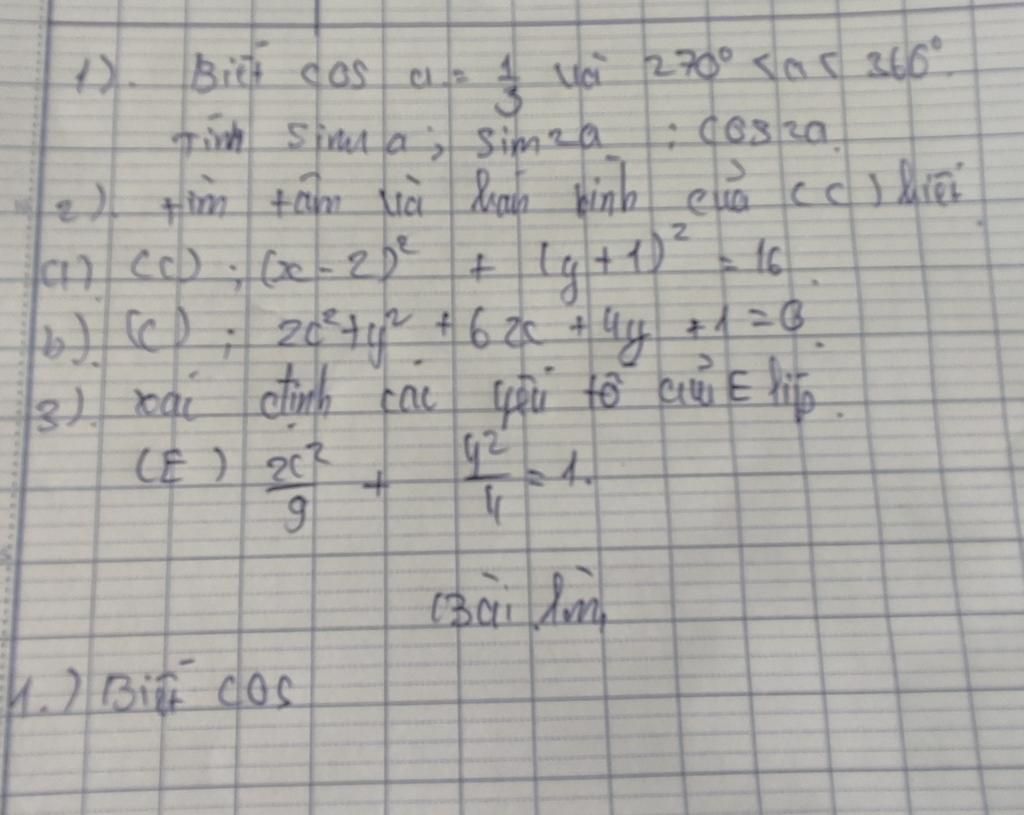 1). Biết cos a = 1/3 và 270° < a < 360°.
Tính sin a; sin2a : cos2a.
2). tìm tâm và bán kính của (C) biết
a) (C) ; (x - 2)² + (y + 1)² = 16.
b). (C) ; x² + y² + 6x + 4y + 1 = 0.
3). xác định các yếu tố của E líp.
(E) x²/9 + y²/4 = 1.
Bài làm
1.) Biết cos